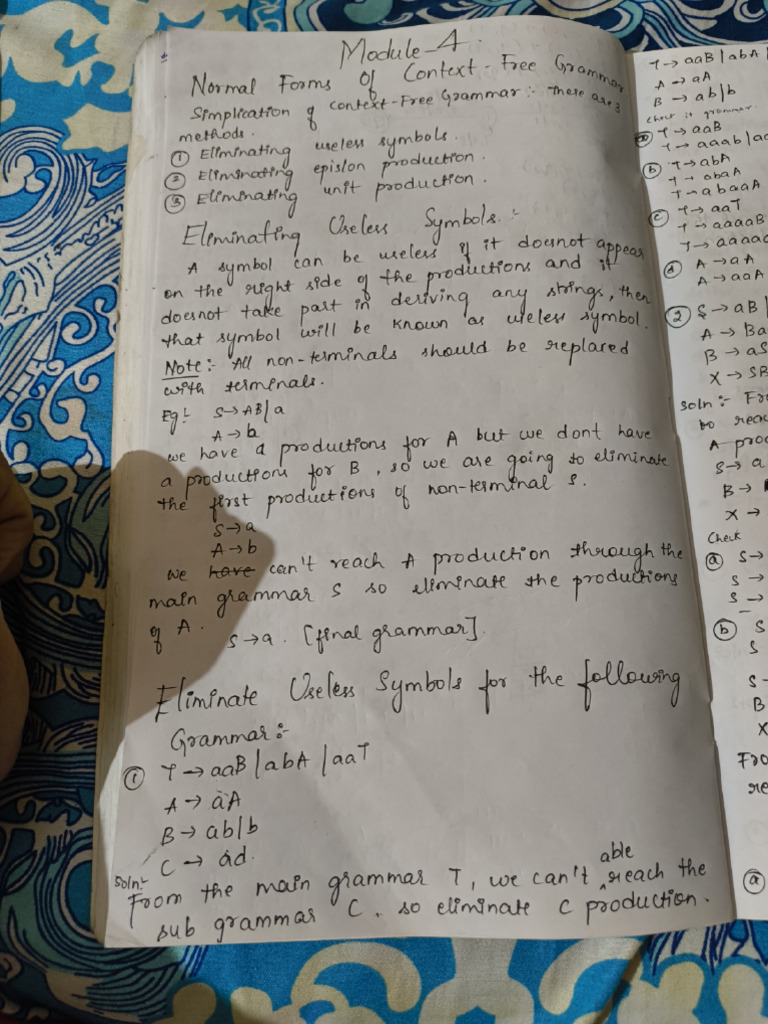 Module-4.
Normal Forms Of Context-Free Grammar
Simplication of context-Free Grammar:- There are 3
methods.
① Eliminating useless symbols.
② Eliminating epislon production.
③ Eliminating unit production.
Eliminating Useless Symbols:-
A symbol can be useless if it doesnot appear
on the right side of the productions and it
doesnot take part in deriving any strings, then
that symbol will be known as useless symbol.
Note:- All non-terminals should be replaced
with terminals.
Eg:- S→AB|a
A→b
we have a productions for A but we dont have
a productions for B, so we are going to eliminate
the first productions of non-terminal S.
S→a
A→b
we have can't reach A production through the
main grammar S so eliminate the productions
of A.
S→a. [final grammar].
Eliminate Useless Symbols for the following
Grammar:-
① T→aaB|abA|aaT
A→aA
B→ab|b
C→ad.
Soln:-
From the main grammar T, we can't able reach the
sub grammar C. so eliminate C production.
T→aaB|abA|
A→aA
B→ab|b
check it grammar.
ⓐ T→aaB
T→aaab|aa
ⓑ T→abA
T→abaA
T→abaaA
ⓒ T→aaT
T→aaaaB
T→aaaa
ⓓ A→aA
A→aaA
② S→aB|
A→Ba
B→aS
X→SB
Soln:- Fro
to reac
A proc
S→a
B→
X→
Check
ⓐ S→
S→
S→
ⓑ S
S
S-
B
X
Fro
re
ⓐ